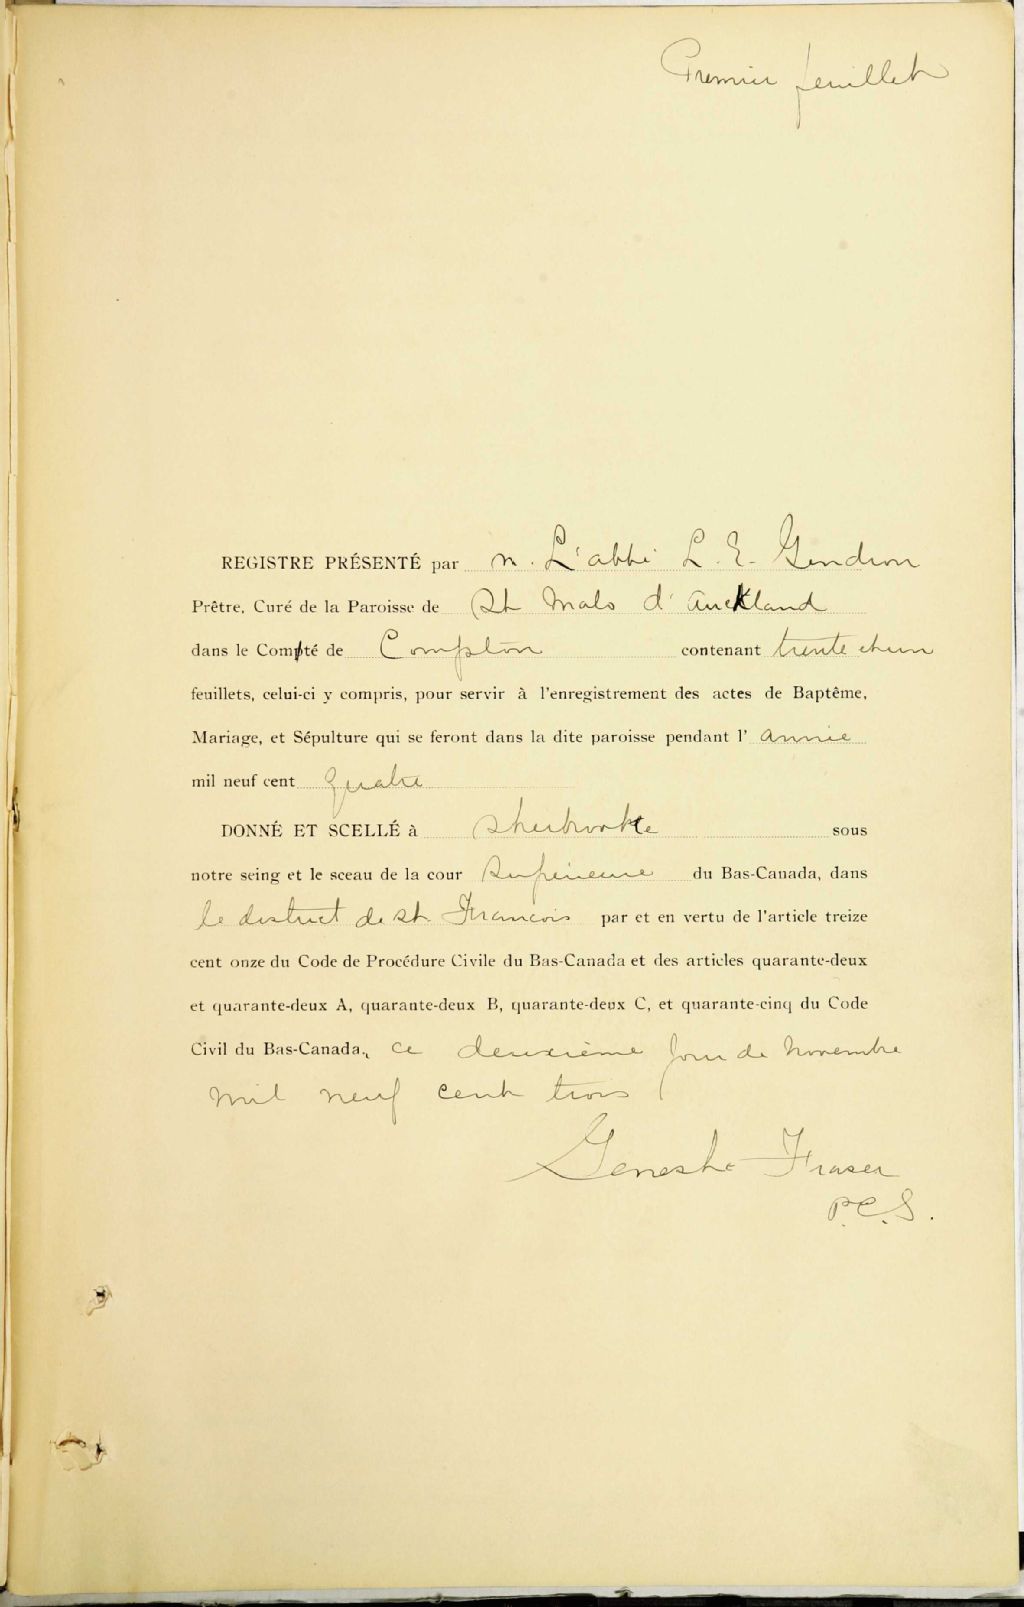 Premier feuillet
REGISTRE PRÉSENTÉ par M. L'abbé L. E. Gendron
Prêtre, Curé de la Paroisse de St Malo d'Auckland
dans le Comté de Compton contenant trente et un
feuillets, celui-ci y compris, pour servir à l'enregistrement des actes de Baptême,
Mariage, et Sépulture qui se feront dans la dite paroisse pendant l'année
mil neuf cent quatre
DONNÉ ET SCELLÉ à Sherbrooke sous
notre seing et le sceau de la cour Supérieure du Bas-Canada, dans
le district de St. Francois par et en vertu de l'article treize
cent onze du Code de Procédure Civile du Bas-Canada et des articles quarante-deux
et quarante-deux A, quarante-deux B, quarante-deux C, et quarante-cinq du Code
Civil du Bas-Canada, ce deuxième jour de novembre
mil neuf cent trois
Genest & Fraser
P.C.S.